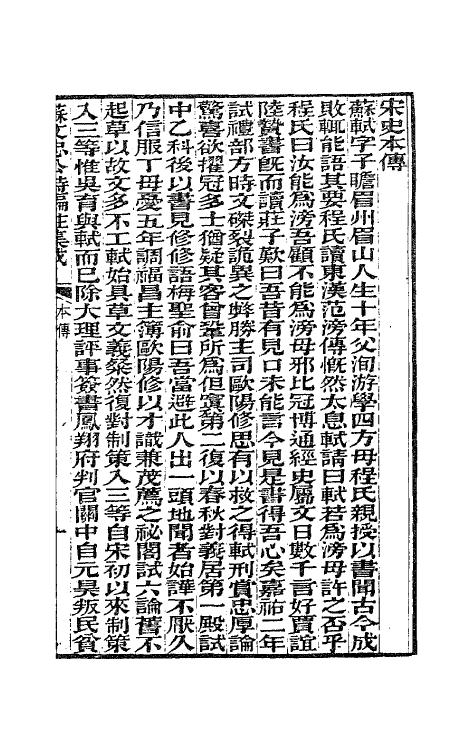 宋史本傳
蘇軾字子瞻眉州眉山人生十年父洵游學四方母程氏親授以書聞古今成
敗輒能語其要程氏讀東漢范滂傳慨然太息軾請曰軾若爲滂母許之否乎
程氏曰汝能爲滂吾顧不能爲滂母邪比冠博通經史屬文日數千言好賈誼
陸贄書旣而讀莊子歎曰吾昔有見口未能言今見是書得吾心矣嘉祐二年
試禮部方時文磔裂詭異之弊勝主司歐陽修思有以救之得軾刑賞忠厚論
驚喜欲擢冠多士猶疑其客曾鞏所爲但寘第二復以春秋對義居第一殿試
中乙科後以書見修修語梅聖俞曰吾當避此人出一頭地聞者始譁不厭久
乃信服丁母憂五年調福昌主簿歐陽修以才識兼茂薦之祕閣試六論舊不
起草以故文多不工軾始具草文義粲然復對制策入三等自宋初以來制策
入三等惟吳育與軾而已除大理評事簽書鳳翔府判官關中自元昊叛民貧
蘇文忠公詩編註集成
本傳
一